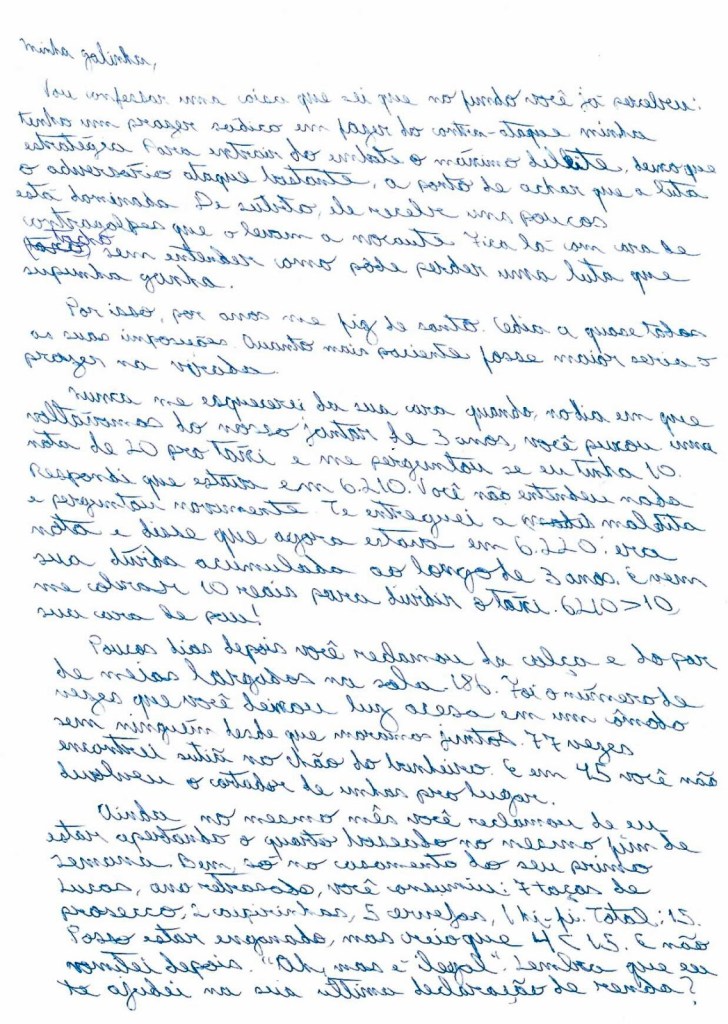 minha galinha,
Vou confessar uma coisa que sei que no fundo você já percebeu:
tenho um prazer sádico em fazer do contra-ataque minha
estratégia. Para extrair do embate o máximo deleite, deixo que
o adversário ataque bastante, a ponto de achar que a luta
está dominada. De súbito, ele recebe uns poucos
contragolpes que o levam a nocaute. Fica lá com cara de
tacho sem entender como pôde perder uma luta que
supunha ganha.
Por isso, por anos me fiz de santo. Cedia a quase todas
as suas imposições. Quanto mais paciente fosse maior seria o
prazer na virada.
Nunca me esquecerei da sua cara quando, no dia em que
voltávamos do nosso jantar de 3 anos, você puxou uma
nota de 20 pro táxi e me perguntou se eu tinha 10.
Respondi que estava em 6.210. Você não entendeu nada
e perguntou novamente. Te entreguei a maldita
nota e disse que agora estava em 6.220: era
sua dívida acumulada ao longo de 3 anos. E vem
me cobrar 10 reais para dividir o táxi. 6210 > 10,
sua cara de pau!
Poucos dias depois você reclamou da calça e do par
de meias largados na sala. 186. Foi o número de
vezes que você deixou luz acesa em um cômodo
sem ninguém desde que moramos juntos. 77 vezes
encontrei sutiã no chão do banheiro. E em 45 você não
devolveu o cortador de unhas pro lugar.
Ainda no mesmo mês você reclamou de eu
estar apertando o quarto baseado no mesmo fim de
semana. Bem, só no casamento do seu primo
Lucas, ano retrasado, você consumiu: 7 taças de
prosecco, 2 caipirinhas, 5 cervejas, 1 hi-fi. Total: 15.
Posso estar enganado, mas creio que 4 < 15. E não
vomitei depois. "Ah, mas é legal". Lembra que eu
te ajudei na sua última declaração de renda?